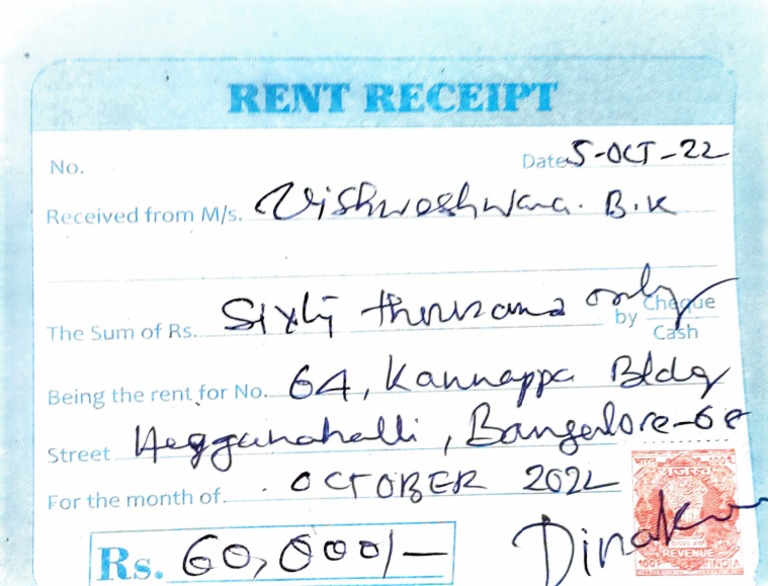 RENT RECEIPT
No. Date 5-OCT-22
Received from M/s. Vishweshwara. B.K
The Sum of Rs. Sixty thousand only by Cheque
Cash
Being the rent for No. 64, Kannappa Bldg
Street Hegganahalli, Bangalore-
For the month of. OCTOBER 2022
Rs. 60,000/-
REVENUE
INDIA